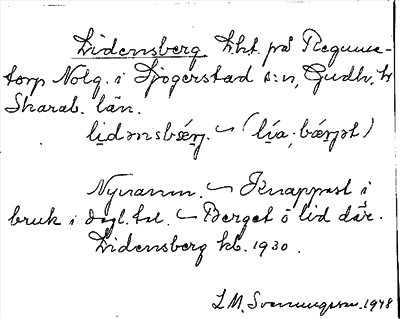 Lidensberg Lht. på Regume-
torp Nolg. i Sjogerstad s:n, Gudh. h
Skarab. län.
li̱dənsbæ̱rj. ~ (li̱a, bæ̱rjət)
Nynamn. ~ Knappast i
bruk i dagl. tal. ~ Berget ö lid där.
Lidensberg kb. 1930.
I. M. Svenungsson. 1948